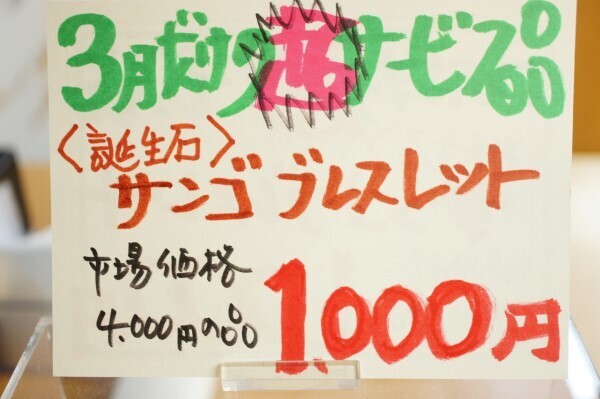 3月だけの超サービス品
<誕生石>
サンゴ ブレスレット
市場価格
4.000円の品
1.000円